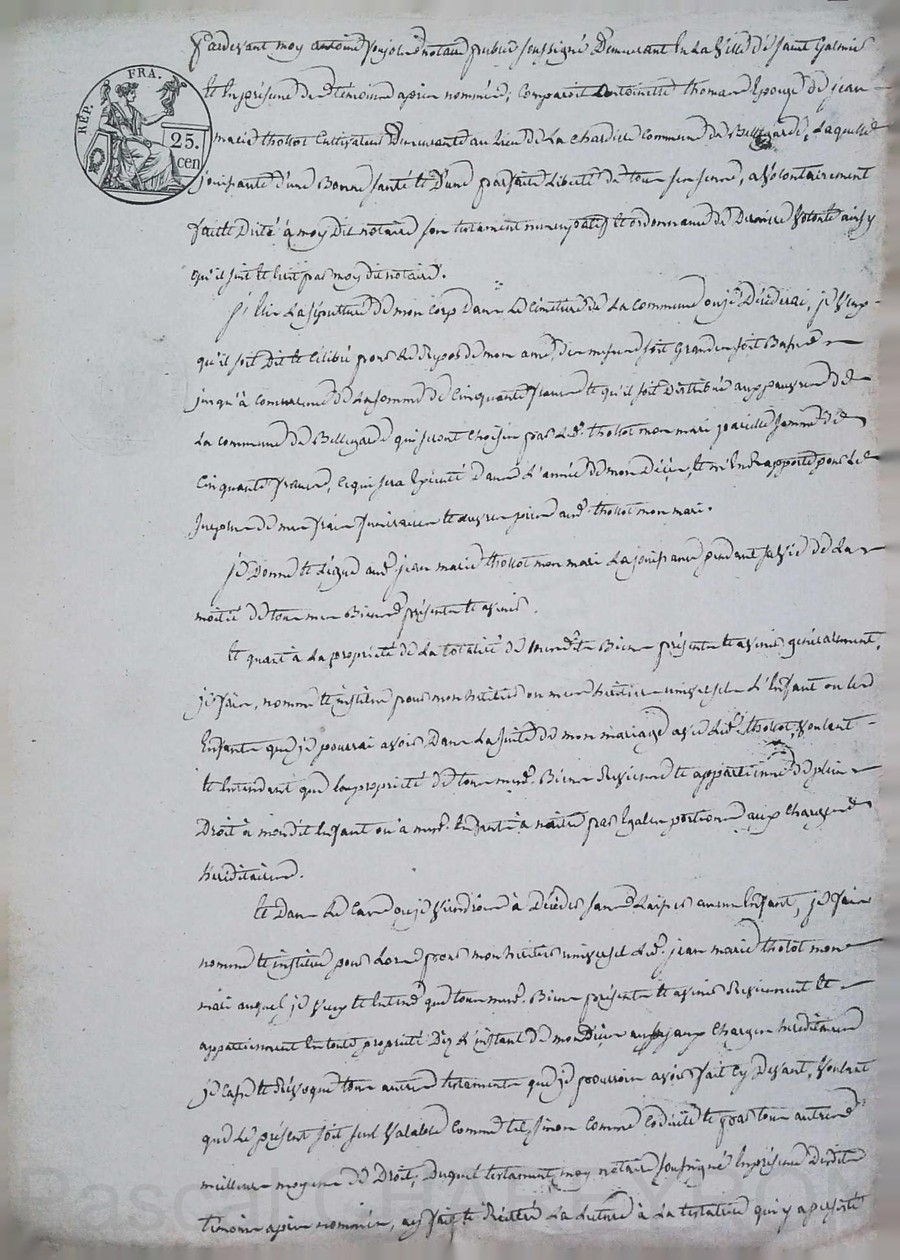 RÉP. FRA.
25.
cen
Pardevant moy antoine notaire public soussigné Demeurant En La Ville de Saint Galmier
Et En présence des témoins après nommés; Comparoit antoinette thomas Epouse de jean
marie thollot Cultivateur Demeurante au Lieu de La Commune de Bellegarde; Laquelle
jouissante d'une Bonne santé Et D'une parfaite Liberté de tous ses sens, a Volontairement
fait Et Dicté à moy Dit notaire son testament nuncupatif Et ordonnance de Derniere Volonté ainsy
qu'il suit Et Ecrit par moy dit notaire.
j'Elis La sépulture de mon Corps Dans Le Cimetiere de La Commune ou je Décéderai, je Veux
qu'il soit Dit Et Célébré pour Le Repos de mon ame, des messes soit Grandes soit Basses
jusqu'à Concurrence de La somme de Cinquante francs Et qu'il soit Distribué aux pauvres de
La commune de Bellegarde qui seront Choisis par Led. thollot mon mari pareille somme de
Cinquante francs, Ce qui sera Exécuté Dans L'année de mon Décès, Et m'En rapporte pour Le
surplus de mes frais funéraires Et œuvres pies aud. thollot mon mari.
je Donne Et Légue aud. jean marie thollot mon mari La jouissance pendant sa Vie de La
moitié de tous mes Biens présents Et avenir.
Et quant à La propriété de La totalité de mesdits Biens présents Et avenir généralement,
je fais, nomme Et institue pour mon héritier ou mes héritiers universels L'Enfant ou Les
Enfants que je pourrai avoir Dans La suite de mon mariage avec Led. thollot, Voulant
Et Entendant que La propriété de tous mesd. Biens Revienne Et appartienne de plein
Droit à mondit Enfant ou à mesd. Enfants à naitre par Egales portions aux Charges
héréditaires.
Et Dans Le Cas ou je Viendrois à Décéder sans Laisser aucun Enfant, je fais
nomme Et institue pour Lors pour mon héritier universel Led. jean marie tholot mon
mari auquel je Veux Et Entend que tous mesd. Biens présents Et avenir Reviennent Et
appartiennent En toute propriété Dès L'instant de mon Décès aux Charges héréditaires
je Casse Et Révoque tous autres testaments que je pourrois avoir fait Cy Devant, Voulant
que Le présent soit seul Valable Comme tel, sinon Comme Codicile Et par tous autres
meilleurs moyens de Droit, Duquel testament, moy notaire soussigné En présence Desdits
témoins après nommés, ay fait Et Réitéré La Lecture à La testatrice qui y a persisté